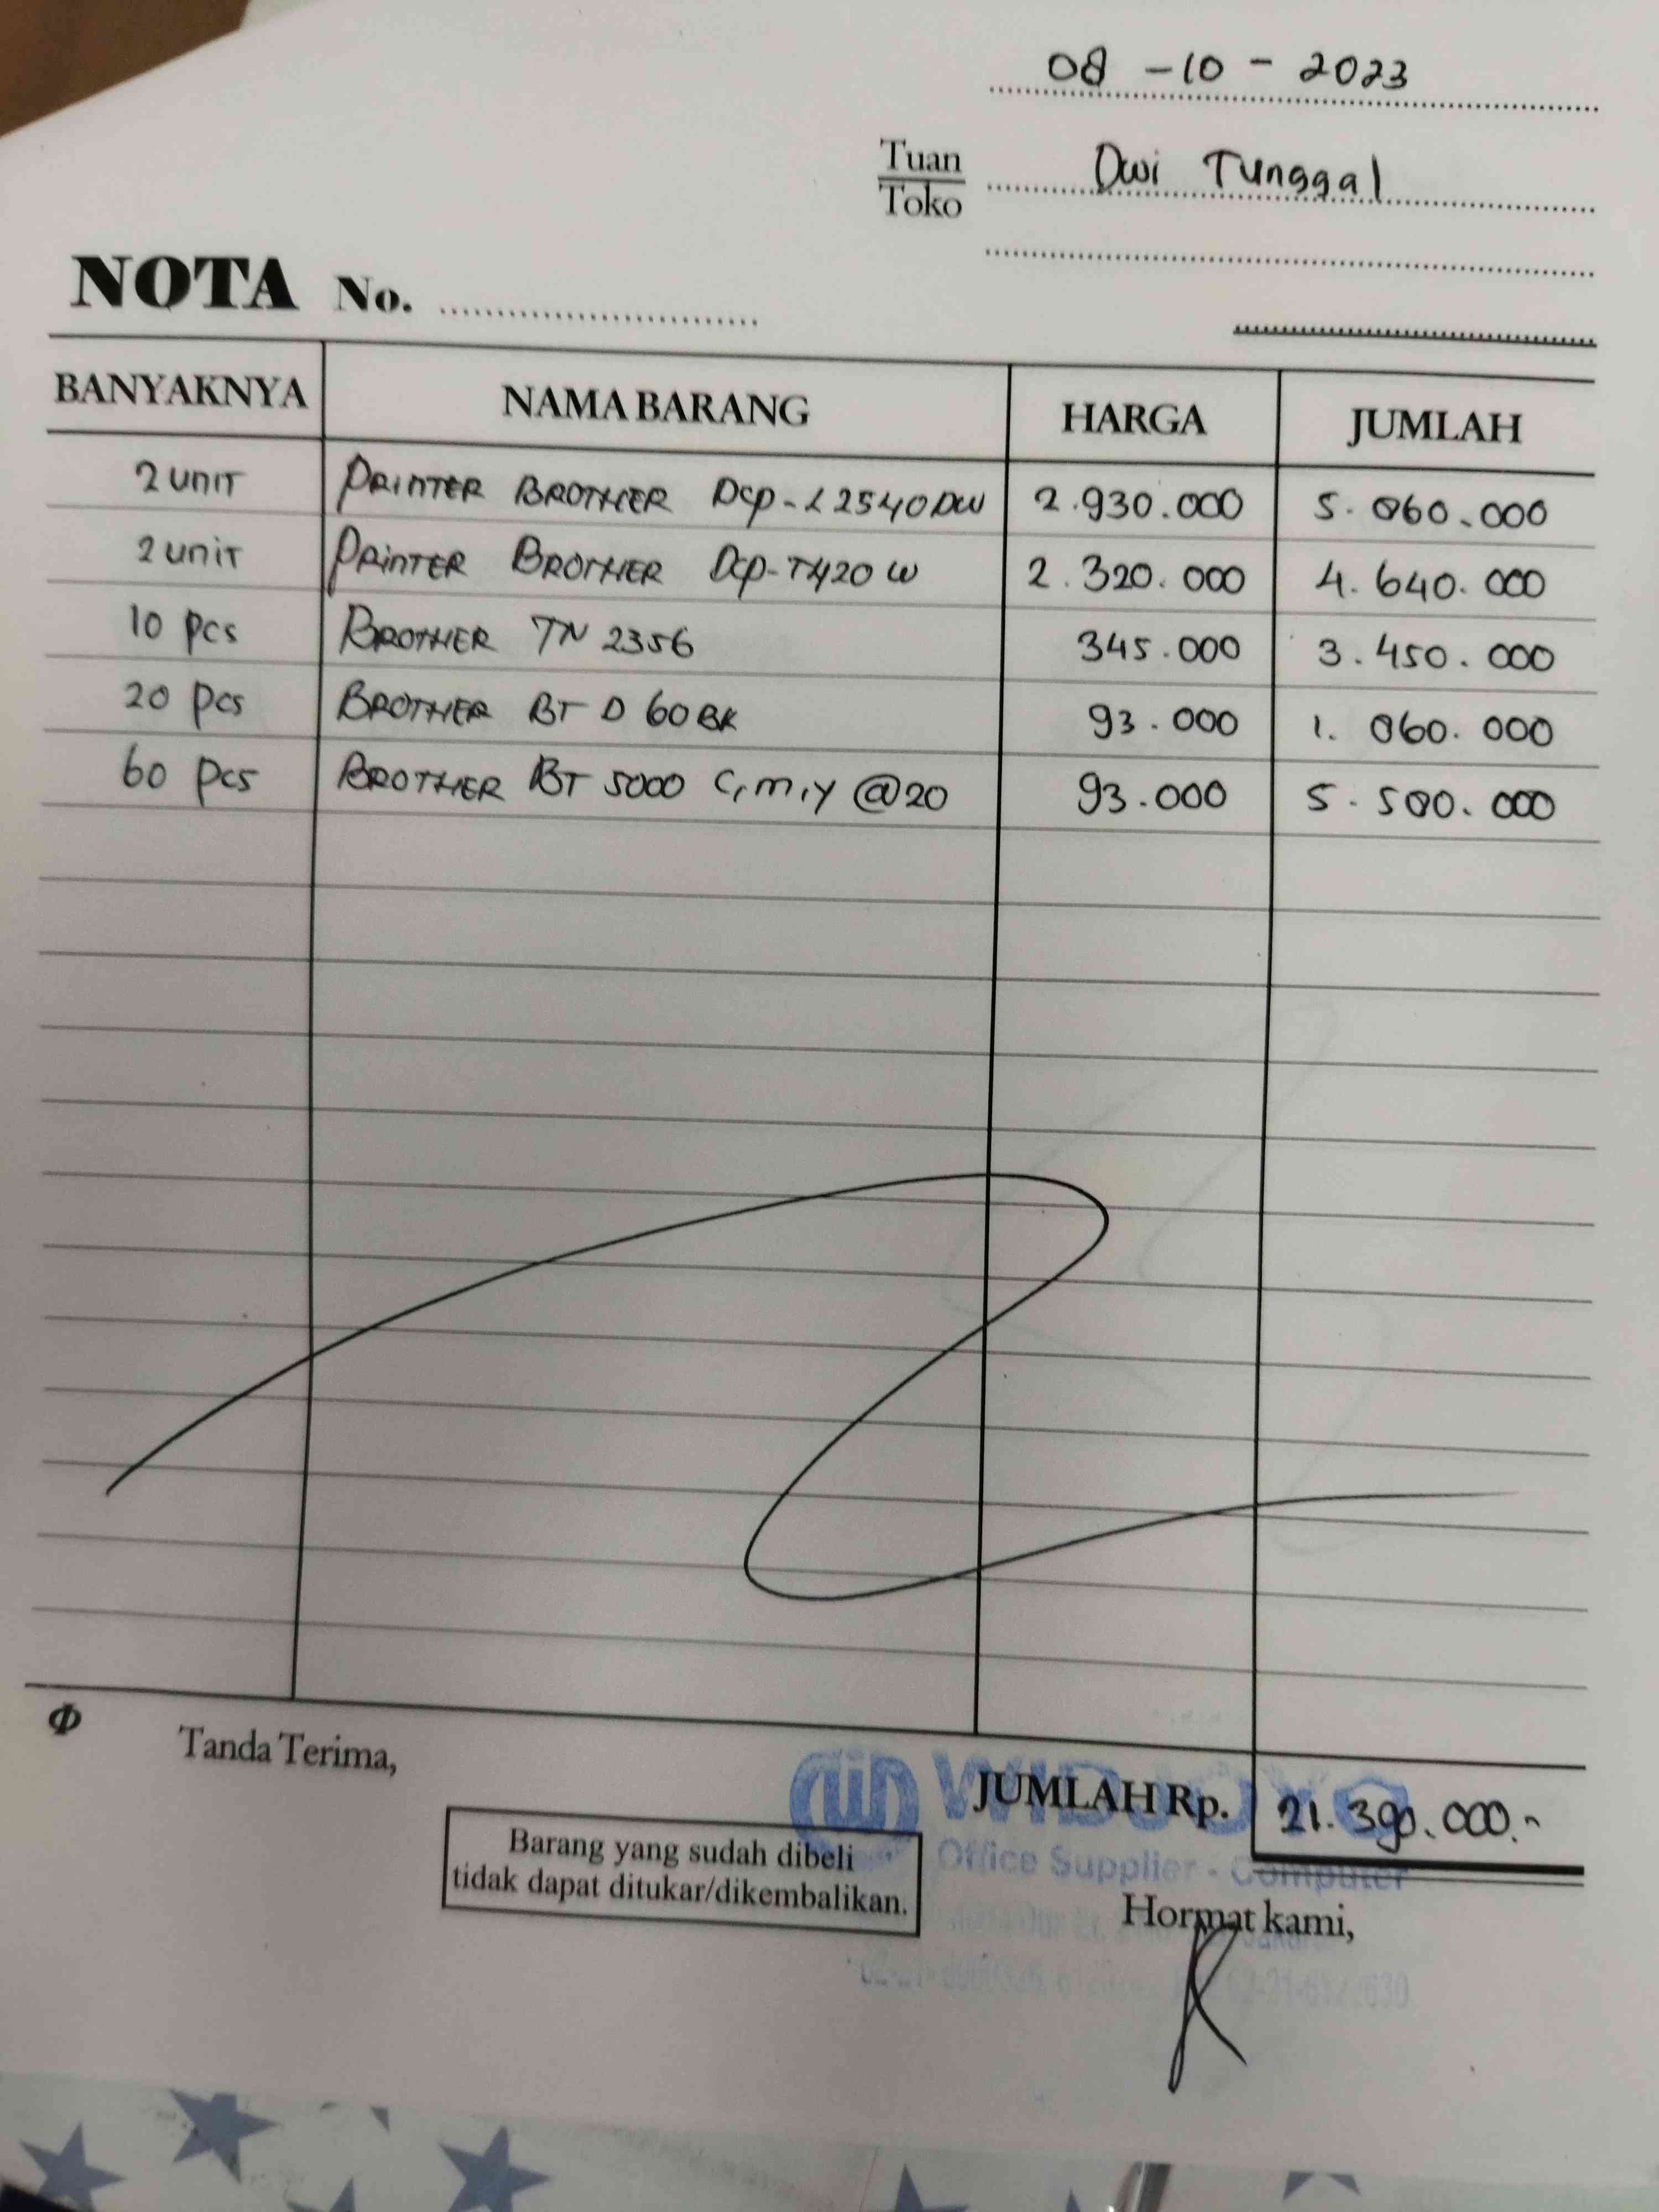 08 - 10 - 2023
Tuan
Toko
Dwi Tunggal
NOTA No.
BANYAKNYA NAMA BARANG HARGA JUMLAH
2 unit PRINTER BROTHER Dcp-L2540DW 2.930.000 5.860.000
2 unit PRINTER BROTHER Dcp-T420W 2.320.000 4.640.000
10 pcs BROTHER TN 2356 345.000 3.450.000
20 pcs BROTHER BT D 60 BK 93.000 1.860.000
60 pcs BROTHER BT 5000 C,M,Y @20 93.000 5.580.000
Tanda Terima,
JUMLAH Rp. 21.390.000.-
Barang yang sudah dibeli
tidak dapat ditukar/dikembalikan.
Office Supplier - Computer
Hormat kami,